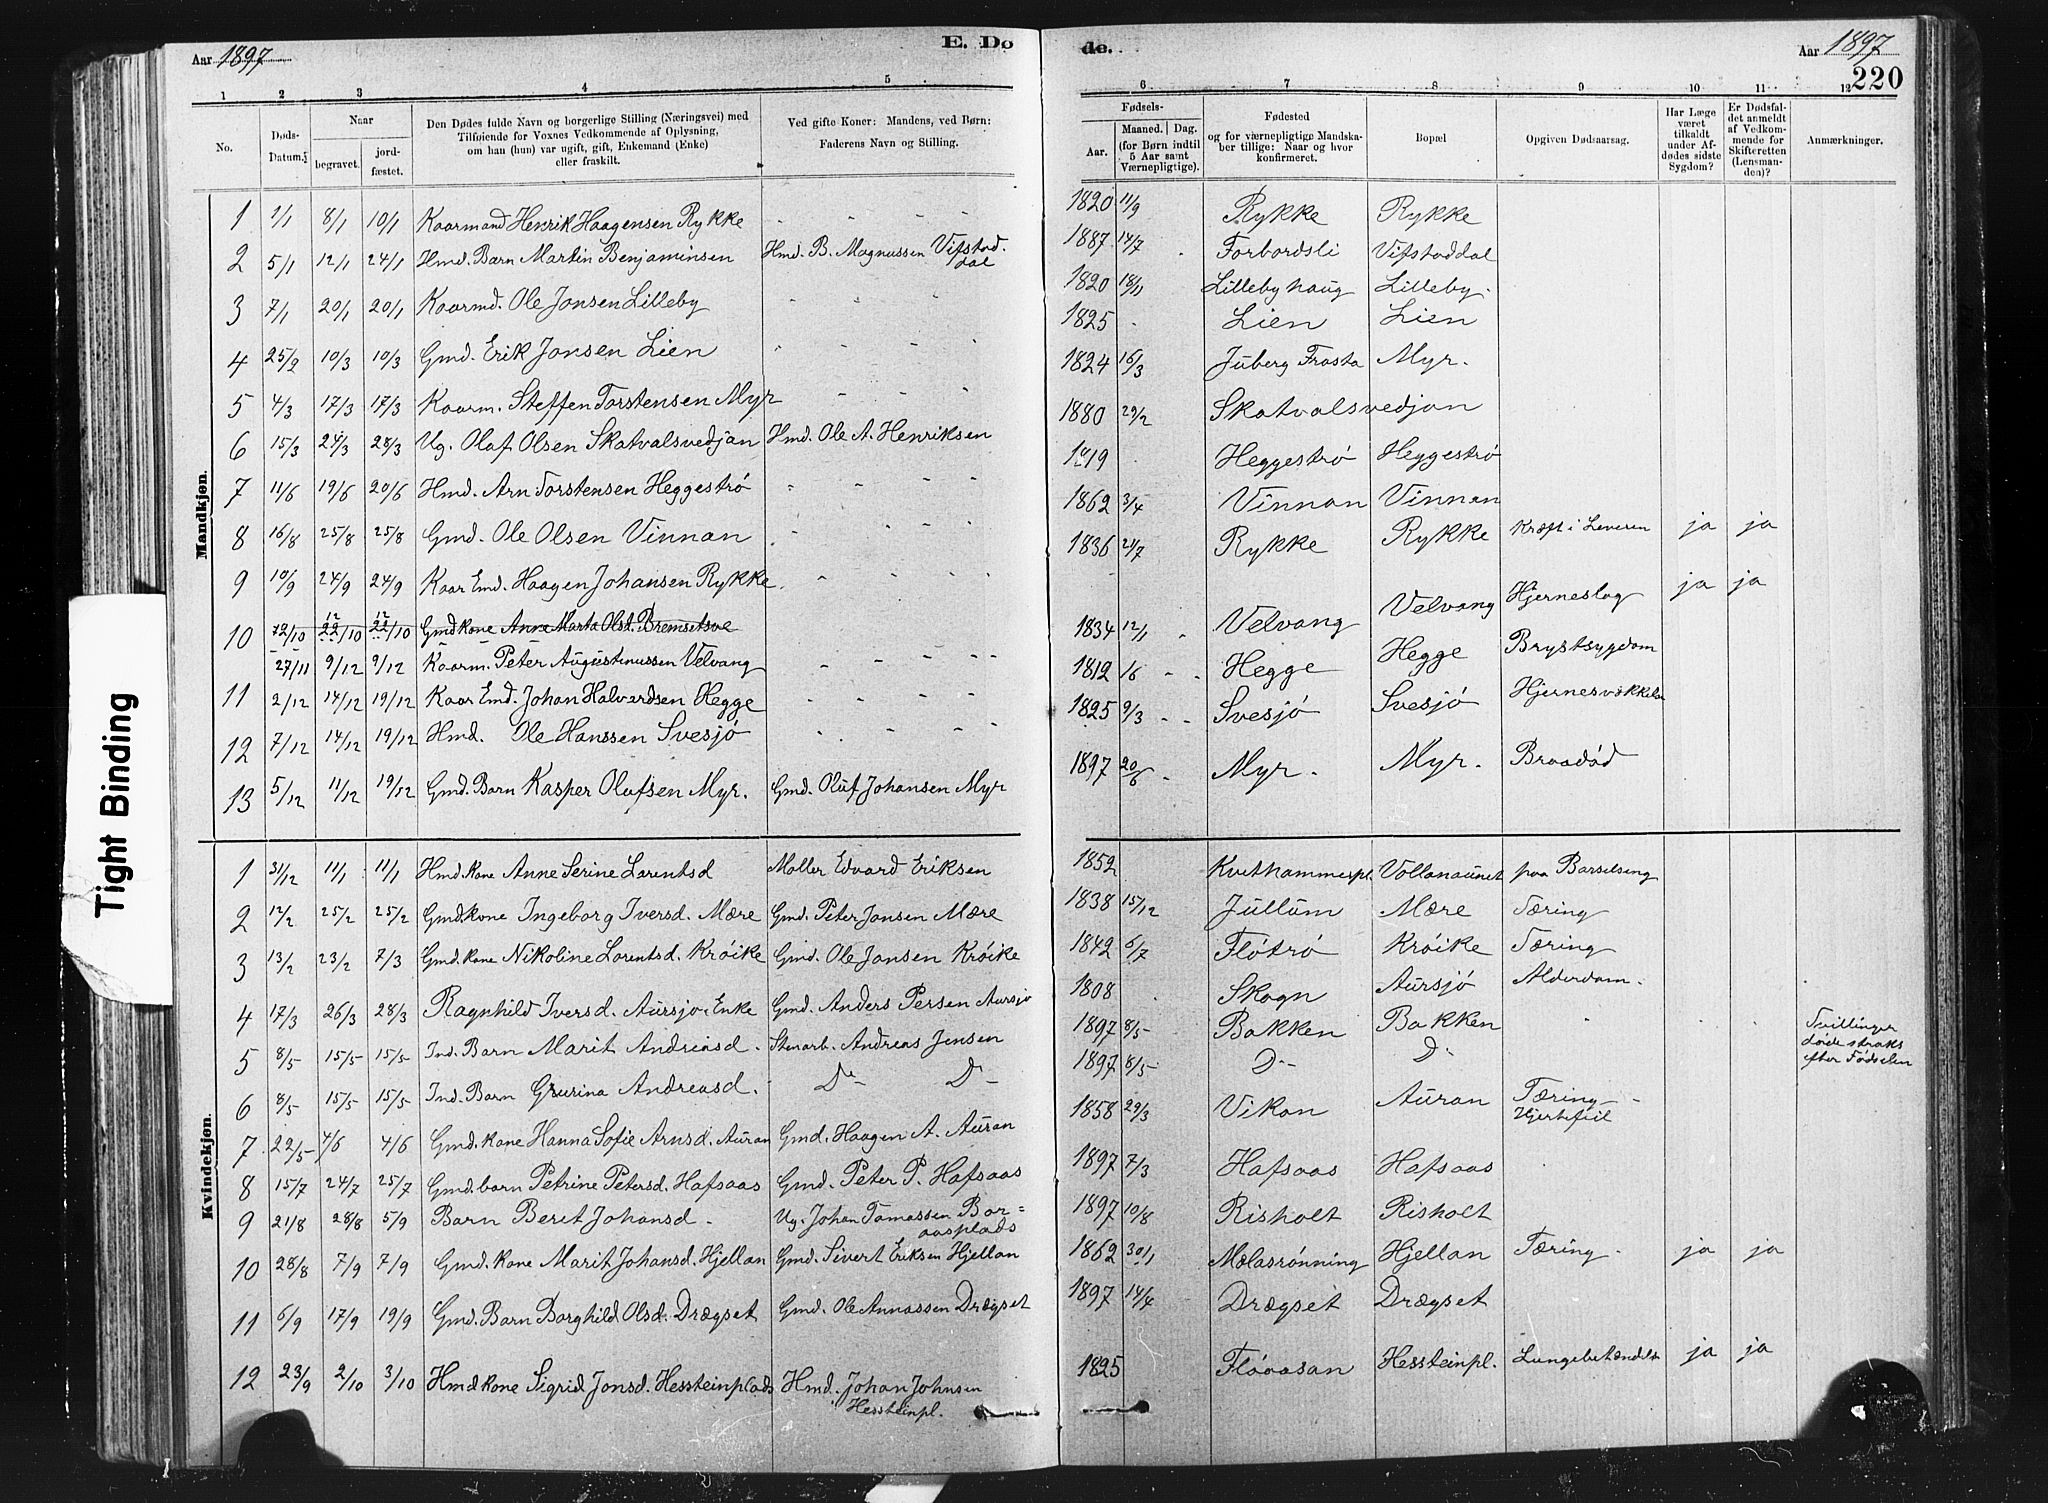 Aar 1897
E. Dø
1 2 3 4 5
No.
Døds-Datum.
Naar
begravet.
jordfæstet.
Den Dødes fulde Navn og borgerlige Stilling (Næringsvei) med
Tilføiende for Voxnes Vedkommende af Oplysning,
om han (hun) var ugift, gift, Enkemand (Enke)
eller fraskilt.
Ved gifte Koner: Mandens, ved Børn:
Faderens Navn og Stilling.
Mandkjøn.
1 1/1 8/1 10/1 Kaarmand Henrik Haagensen Rykke - - - -
2 5/1 12/1 24/1 Hmd. Barn Martin Benjaminsen Hmd. B. Magnussen Vifstad-
dal
3 7/1 20/1 20/1 Kaarmd. Ole Jonsen Lilleby
4 25/2 10/3 10/3 Gmd. Erik Jonsen Lien
5 4/3 17/3 17/3 Kaarm. Steffen Torstensen Myr
6 15/3 24/3 28/3 Ug. Olaf Olsen Skatvalsvedjan Hmd. Ole A. Henriksen
7 11/6 19/6 20/6 Hmd. Arn Torstensen Heggestrø
8 16/8 25/8 25/8 Gmd. Ole Olsen Vinnan
9 10/9 24/9 24/9 Kaar Emd. Haagen Johansen Rykke
10 12/10 22/10 22/10 Gmdkone Anne Marta Olsd. Bremsetsve
27/11 9/12 9/12 Kaarm. Peter Augustinussen Velvang
11 2/12 14/12 19/12 Kaar Emd. Johan Halvardsen Hegge
12 7/12 14/12 19/12 Hmd. Ole Hanssen Svesjø
13 5/12 11/12 19/12 Gmd. Barn Kasper Olufsen Myr. Gmd. Oluf Johansen Myr
Kvindekjøn.
1 31/12 11/1 11/1 Hmd kone Anne Serine Lorentsd Møller Edvard Eriksen
2 12/2 25/2 25/2 Gmdkone Ingeborg Iversd. Mære Gmd. Peter Jonsen Mære
3 13/2 23/2 7/3 Gmd. kone Nikoline Lorentsd. Krøike Gmd. Ole Jonsen Krøike
4 17/3 26/3 28/3 Ragnhild Iversd. Aursjø. Enke Gmd. Anders Persen Aursjø
5 8/5 15/5 15/5 Ind. Barn Marit Andreasd. Stenarb. Andreas Jensen
6 8/5 15/5 15/5 Ind. Barn Gurina Andreasd. Do- Do-
7 22/5 4/6 4/6 Gmd. kone Hanna Sofie Arnsd. Auran Gmd. Haagen A. Auran
8 15/7 24/7 25/7 Gmd. barn Petrine Petersd. Hafsaas Gmd. Peter P. Hafsaas
9 21/8 28/8 5/9 Barn Beret Johansd. Ug. Johan Tomassen Bor=
aasplads
10 28/8 7/9 7/9 Gmd. kone Marit Johansd. Hjellan Gmd. Sivert Eriksen Hjellan
11 6/9 17/9 19/9 Gmd. Barn Borghild Olsd. Drægset Gmd. Ole Annassen Drægset
12 23/9 2/10 3/10 Hmd kone Sigrid Jonsd. Hessteinplads Hmd. Johan Johnsen
Hessteinpl.
de.
Aar 1897
220
6 7 8 9 10 11 12
Fødsels-
Aar.
Maaned. Dag.
(for Børn indtil
5 Aar samt
Værnepligtige).
Fødested
og for værnepligtige Mandska-
ber tillige: Naar og hvor
konfirmeret.
Bopæl
Opgiven Dødsaarsag.
Har Læge
været
tilkaldt
under Af-
dødes sidste
Sygdom?
Er Dødsfal-
det anmeldt
af Vedkom-
mende for
Skifteretten
(Lensman-
den)?
Anmærkninger.
1820 11/9 Rykke Rykke
1887 14/7 Forbordsli Vifstaddal
1820 18/11 Lillebyhaug Lilleby.
1825 Lien Lien
1824 16/3 Juberg Frosta Myr.
1880 29/2 Skatvalsvedjan
1819 Heggestrø Heggestrø
1862 3/4 Vinnan Vinnan
1836 24/7 Rykke Rykke Kræft i Leveren ja ja
1834 12/1 Velvang Velvang Hjerneslag ja ja
1812 16 Hegge Hegge Brystsygdom
1825 9/3 Svesjø Svesjø
1897 20/6 Myr. Myr. Braadød
1852 Kvithammerpl. Vollanaunet paa Barselseng
1838 15/12 Jullum Mære Tæring
1842 6/7 Fløtrø Krøike Tæring
1808 Skogn Aursjø Alderdom.
1897 8/5 Bakken Bakken Tvillinger
døde straks
efter Fødselen
1897 8/5 D- D-
1858 29/3 Vikan Auran Tæring
Hjertefeil
1897 7/3 Hafsaas Hafsaas
1897 10/8 Risholt Risholt
1862 30/1 Mælasrønning Hjellan Tæring ja ja
1897 14/4 Drægset Drægset
1825 Flørasan Hessteinpl. Lungebetændelse ja ja
Tight Binding